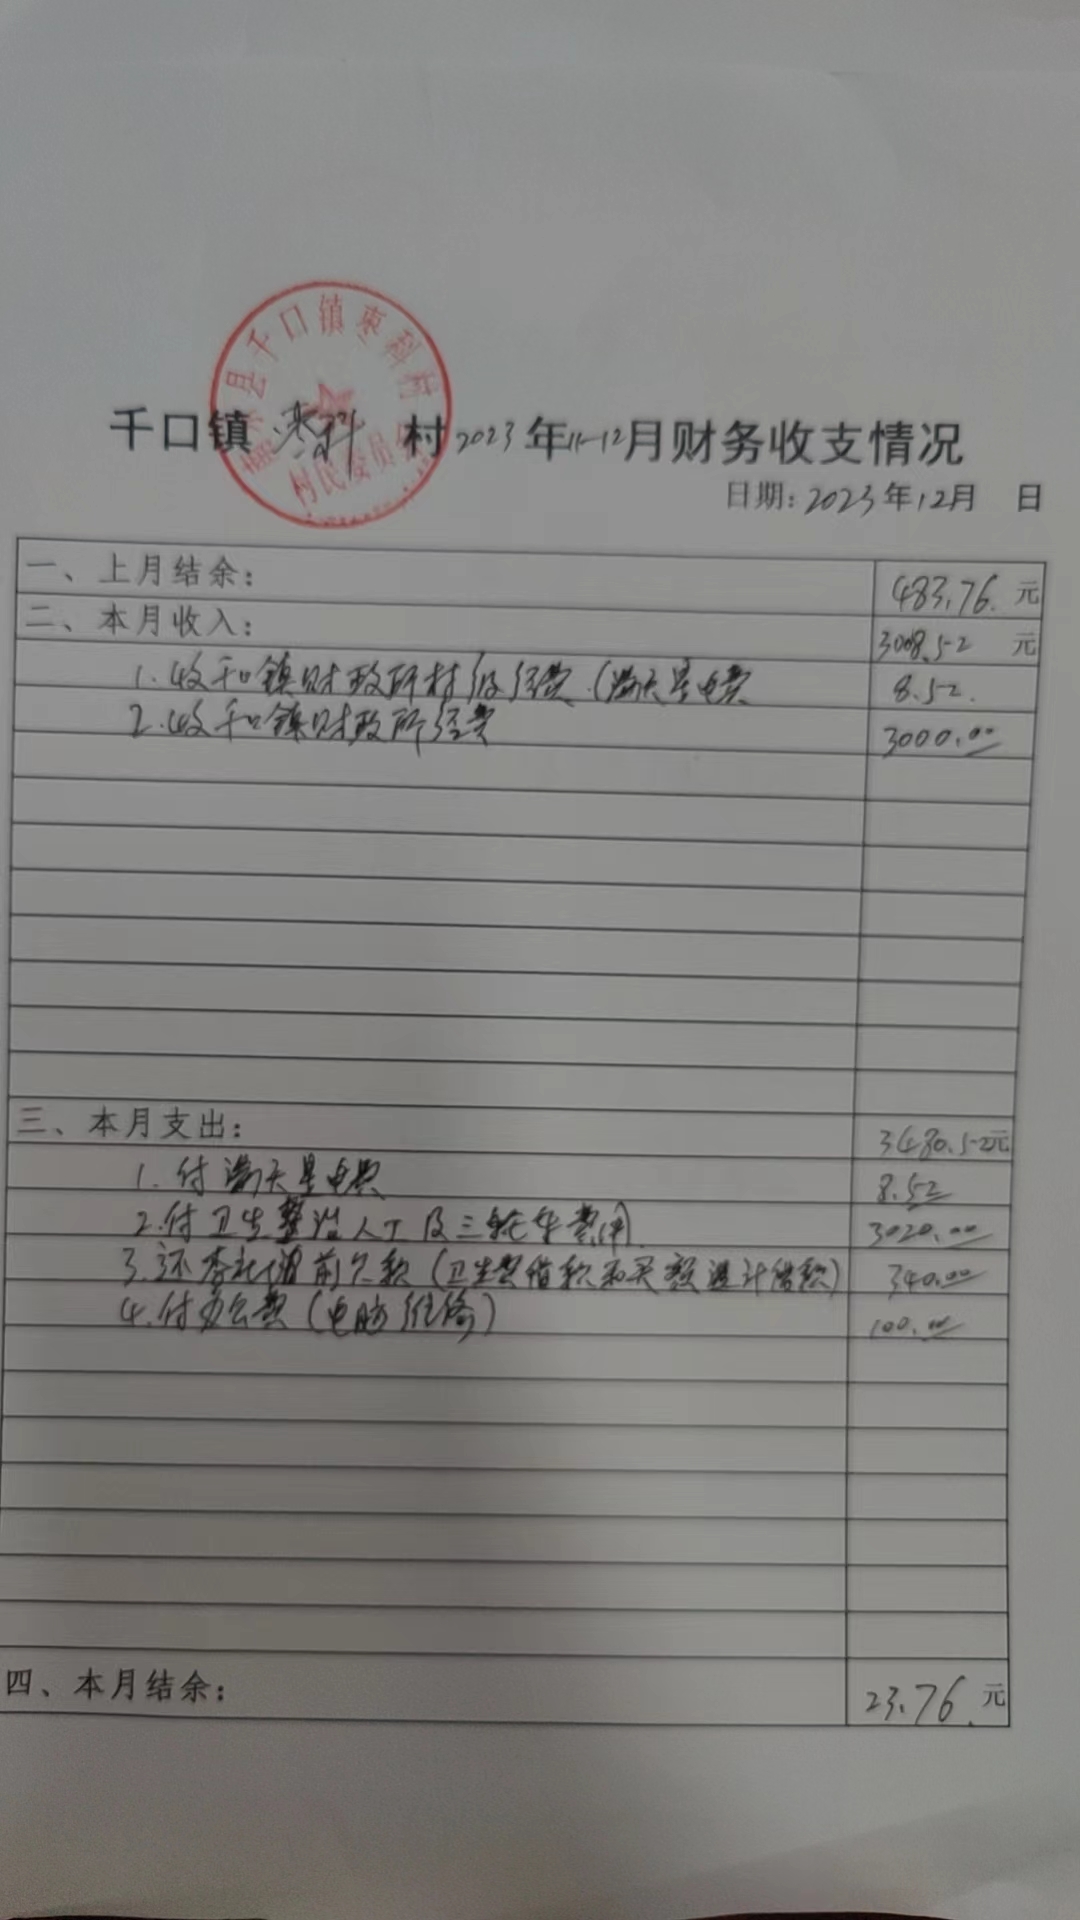 千口镇枣科村2023年11-12月财务收支情况
日期:2023年12月 日
一、上月结余: 483.76元
二、本月收入: 3008.52元
1.收千口镇财政所村级经费(满天星电费 8.52
2.收千口镇财政所经费 3000.00
三、本月支出: 3480.52元
1.付满天星电费 8.52
2.付卫生整治人工及三轮车费用 3020.00
3.还李 前欠款(卫生费借款和 借款) 340.00
4.付办公费(电脑维修) 100.00
四、本月结余: 23.76元
县千口镇枣科村
村民委员会